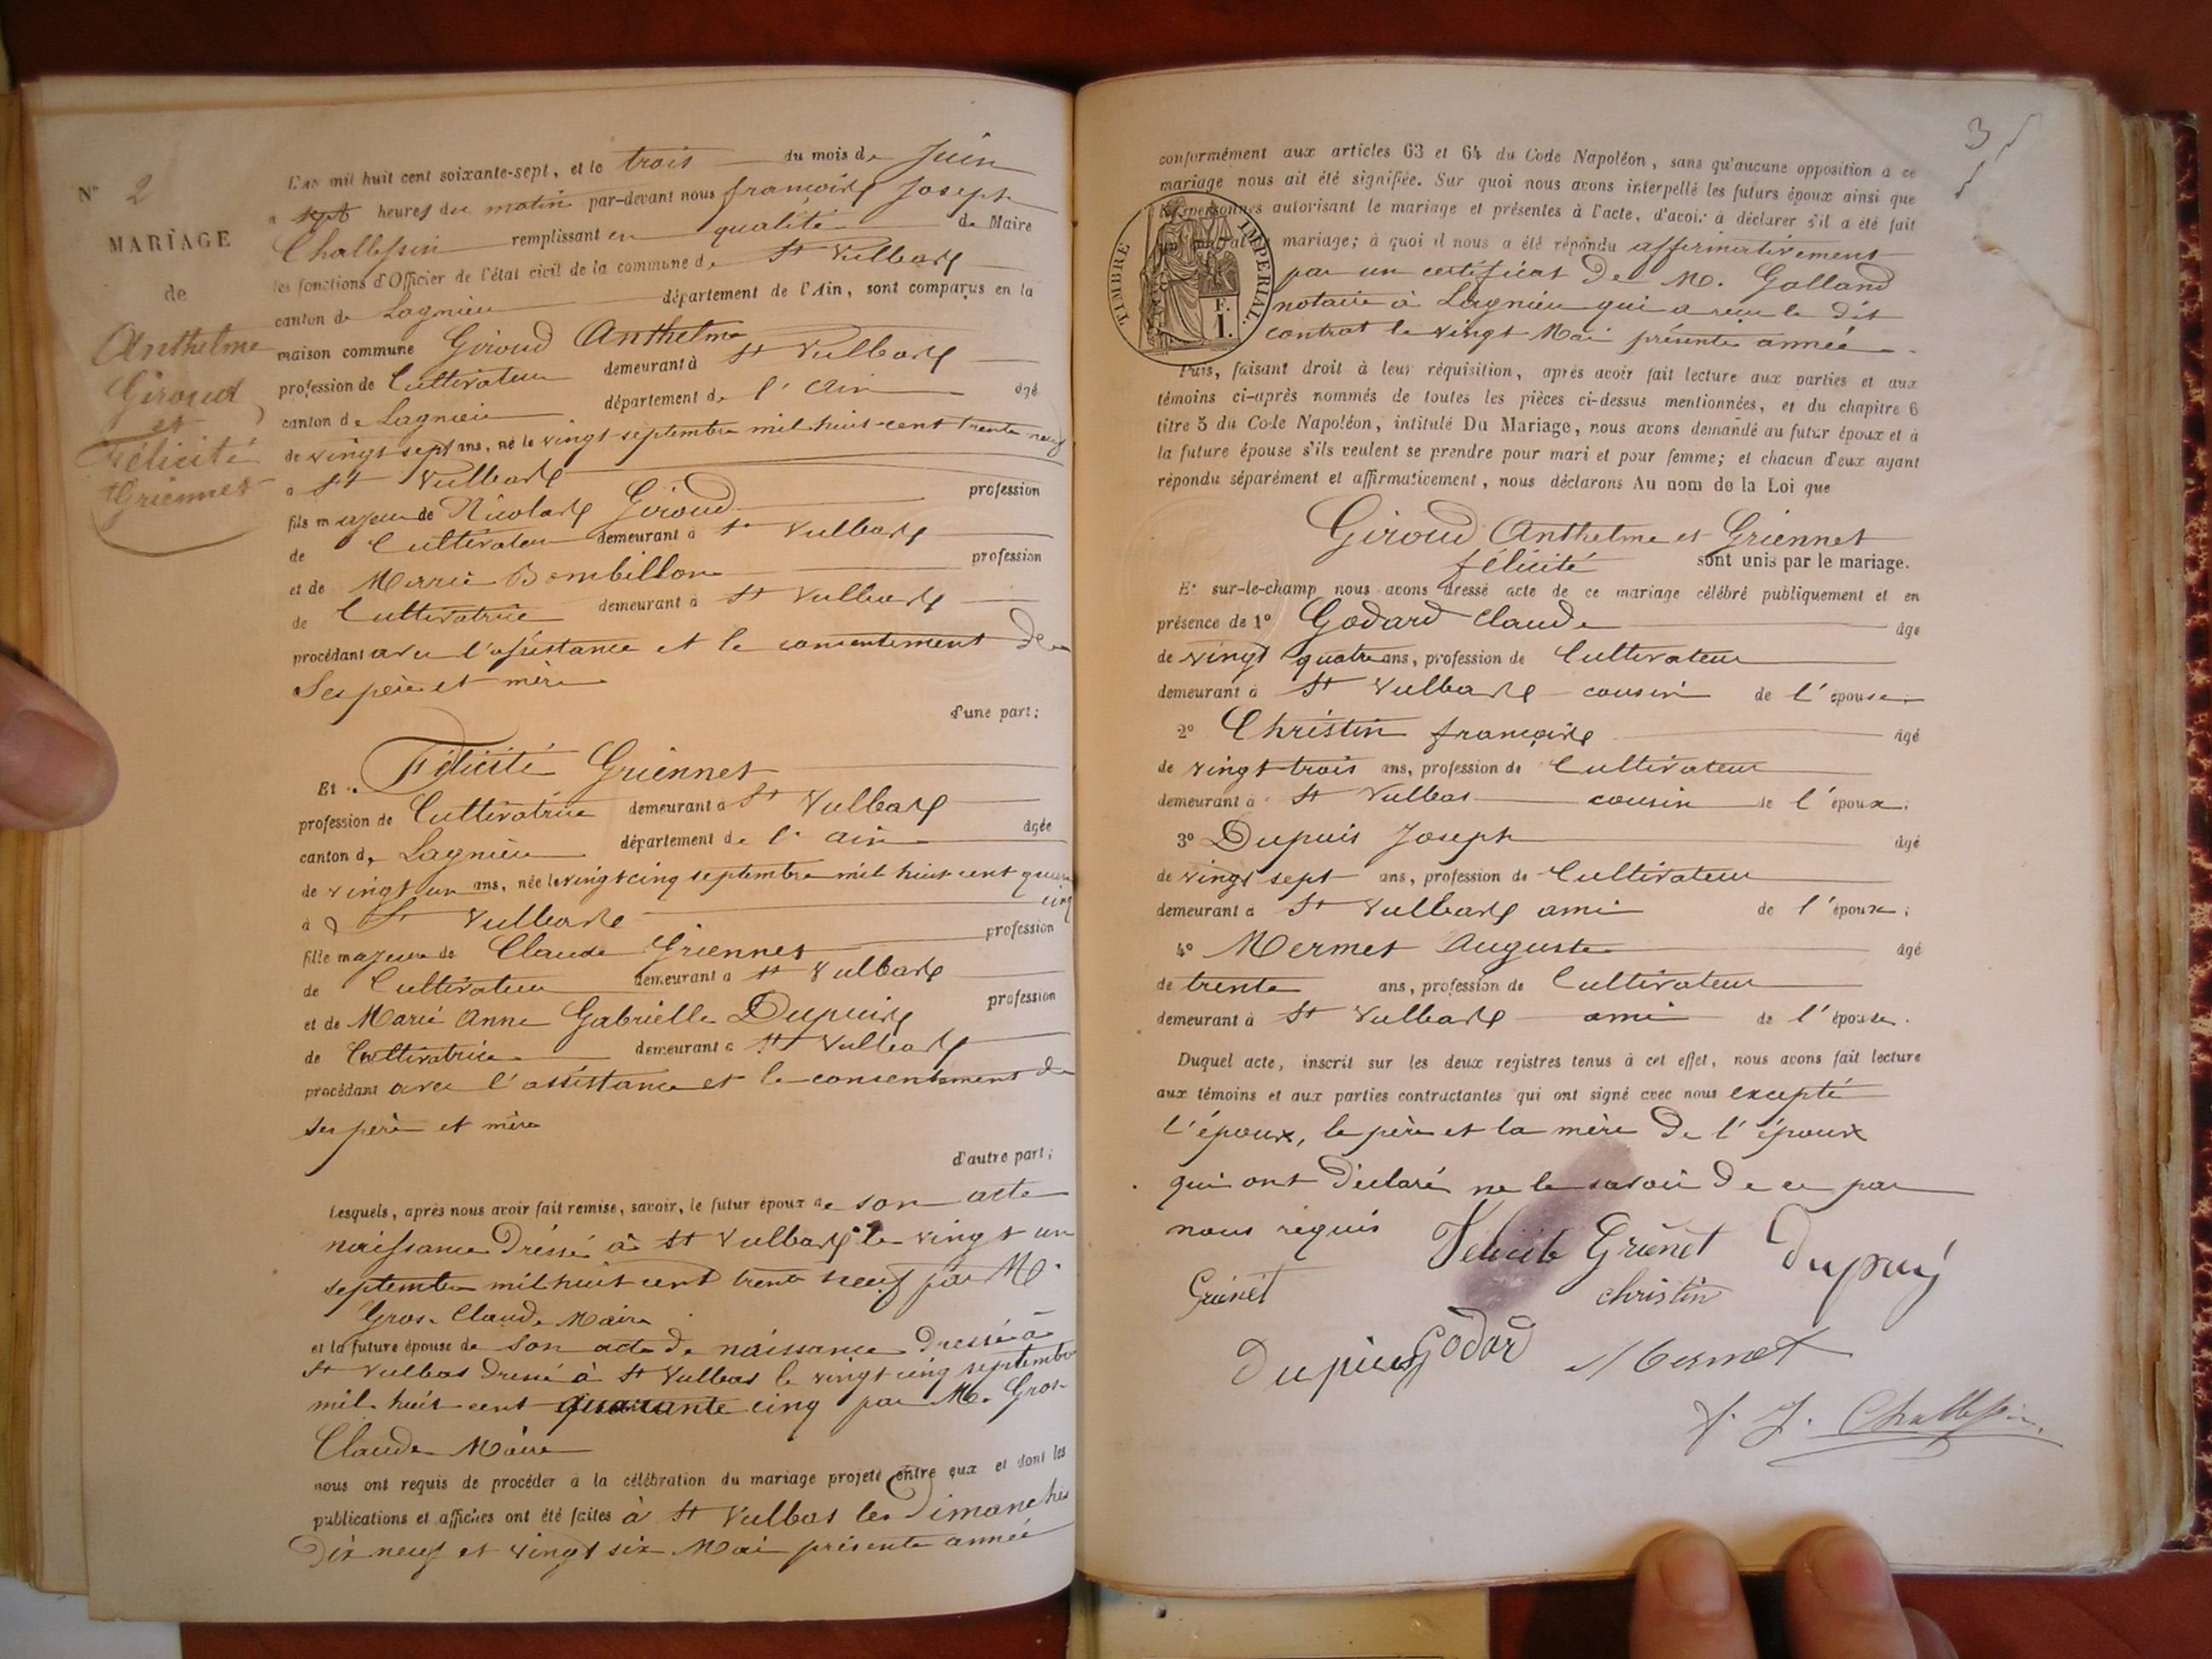 N° 2
MARIAGE
de
Anthelme
Giroud
et
Félicité
Griennet
L'an mil huit cent soixante-sept, et le trois du mois de Juin
a sept heures du matin par-devant nous françois Joseph
Challessin remplissant en qualité de Maire
les fonctions d'Officier de l'état civil de la commune de St Vulbas
canton de Lagnieu département de l'Ain, sont comparus en la
maison commune Giroud Anthelme
profession de Cultivateur demeurant à St Vulbas
canton de Lagnieu département de l'Ain âgé
de vingt sept ans, né le vingt septembre mil huit cent trente neuf
a St Vulbas
fils majeur de Nicolas Giroud profession
de Cultivateur demeurant à St Vulbas
et de Marie Bombillon profession
de Cultivatrice demeurant à St Vulbas
procédant avec l'assistance et le consentement de
Ses père et mère
d'une part;
Et Félicité Griennet
profession de Cultivatrice demeurant à St Vulbas
canton de Lagnieu département de l'Ain âgée
de vingt un ans, née le vingt cinq septembre mil huit cent quara
cinq
à St Vulbas
fille majeure de Claude Griennet profession
de Cultivateur demeurant a St Vulbas
et de Marie Anne Gabrielle Dupuis profession
de Cultivatrice demeurant a St Vulbas
procédant avec l'assistance et le consentement de
ses père et mère
d'autre part;
Lesquels, après nous avoir fait remise, savoir, le futur époux de son acte
naissance Dressé à St Vulbas le vingt un
septembre mil huit cent trente neuf par M.
Gros. Claude Maire
et la future épouse de son acte de naissance Dressé à
St Vulbas dressé à St Vulbas le vingt cinq septembre
mil huit cent quarante cinq par M. Gros
Claude Maire
nous ont requis de procéder à la célébration du mariage projeté entre eux et dont les
publications et affiches ont été faites à St Vulbas les Dimanches
Dix neuf et vingt six Mai présente année
3
conformément aux articles 63 et 64 du Code Napoléon, sans qu'aucune opposition à ce
mariage nous ait été signifiée. Sur quoi nous avons interpellé les futurs époux ainsi que
les personnes autorisant le mariage et présentes à l'acte, d'avoir à déclarer s'il a été fait
un contrat de mariage; à quoi il nous a été répondu affirmativement
par un certificat De M. Golland
notaire à Lagnieu qui a reçu le dit
contrat le vingt Mai présente année.
TIMBRE IMPERIAL
1 F.
Puis, faisant droit à leur réquisition, après avoir fait lecture aux parties et aux
témoins ci-après nommés de toutes les pièces ci-dessus mentionnées, et du chapitre 6
titre 5 du Code Napoléon, intitulé Du Mariage, nous avons demandé au futur époux et à
la future épouse s'ils veulent se prendre pour mari et pour femme; et chacun d'eux ayant
répondu séparément et affirmativement, nous déclarons Au nom de la Loi que
Giroud Anthelme et Griennet
félicité sont unis par le mariage.
Et sur-le-champ nous avons dressé acte de ce mariage célébré publiquement et en
présence de 1° Godard Claude âge
de vingt quatre ans, profession de Cultivateur
demeurant à St Vulbas cousin de l'épouse;
2° Christin françois âgé
de vingt trois ans, profession de Cultivateur
demeurant à St Vulbas cousin de l'époux;
3° Dupuis Joseph âgé
de vingt sept ans, profession de Cultivateur
demeurant à St Vulbas ami de l'époux;
4° Mermet Auguste âgé
de trente ans, profession de Cultivateur
demeurant à St Vulbas ami de l'épouse.
Duquel acte, inscrit sur les deux registres tenus à cet effet, nous avons fait lecture
aux témoins et aux parties contractantes qui ont signé avec nous excepté
l'époux, le père et la mère De l'époux
qui ont Déclaré ne le savoir De ce par
nous requis
Félicité Griènet Dupuy
Griènet christin
Dupuis Godard Mermet
f. J. Challessin